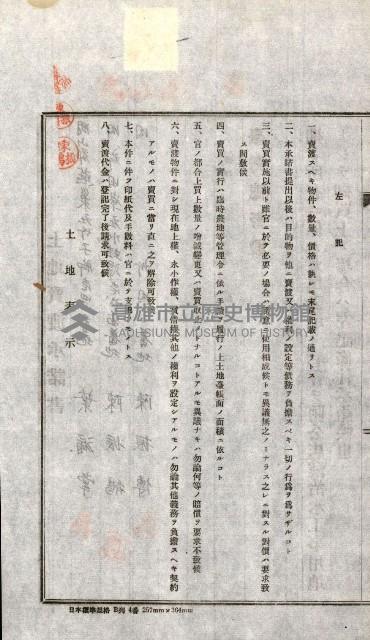 左記
一、賣渡スヘキ物件、數量、價格ハ執レモ末尾記載ノ通リトス
二、本承諾書提出以後ハ目的物ヲ他ニ賣渡又ハ權利ノ設定等債務ヲ負擔スベキ一切ノ行爲ヲ爲サザルコト
三、賣買實施以前ト雖官ニ於テ必要ノ場合ハ無償使用相成候トモ異議無之ノミナラス之レニ對スル對價ハ要求致
ス間敷候
四、賣買ノ實行ハ臨時農地等管理令ニ依ル手續ヲ履行ノ上土地臺帳面ノ面積ニ依ルコト
五、官ノ都合上買上數量ノ增減變更又ハ賣買取止トナルコトアルモ異議ナキハ勿論何等ノ賠償ヲ要求不致候
六、賣渡物件ニ對シ現在地上權、永小作權、質借權其他ノ權利ヲ設定シアルモノハ勿論其他義務ヲ負擔スヘキ契約
アルモノハ賣買ニ當リ直ニ之ヲ解除可致候
七、本件ニ伴フ印紙代及手數料ハ官ニ於テ支辨ノコトス
八、賣渡代金ハ登記完了後請求可致候
土地表示
高雄市立歷史博物館
KAOHSIUNG MUSEUM OF HISTORY
日本標準規格 B列 4番 257mm×364mm